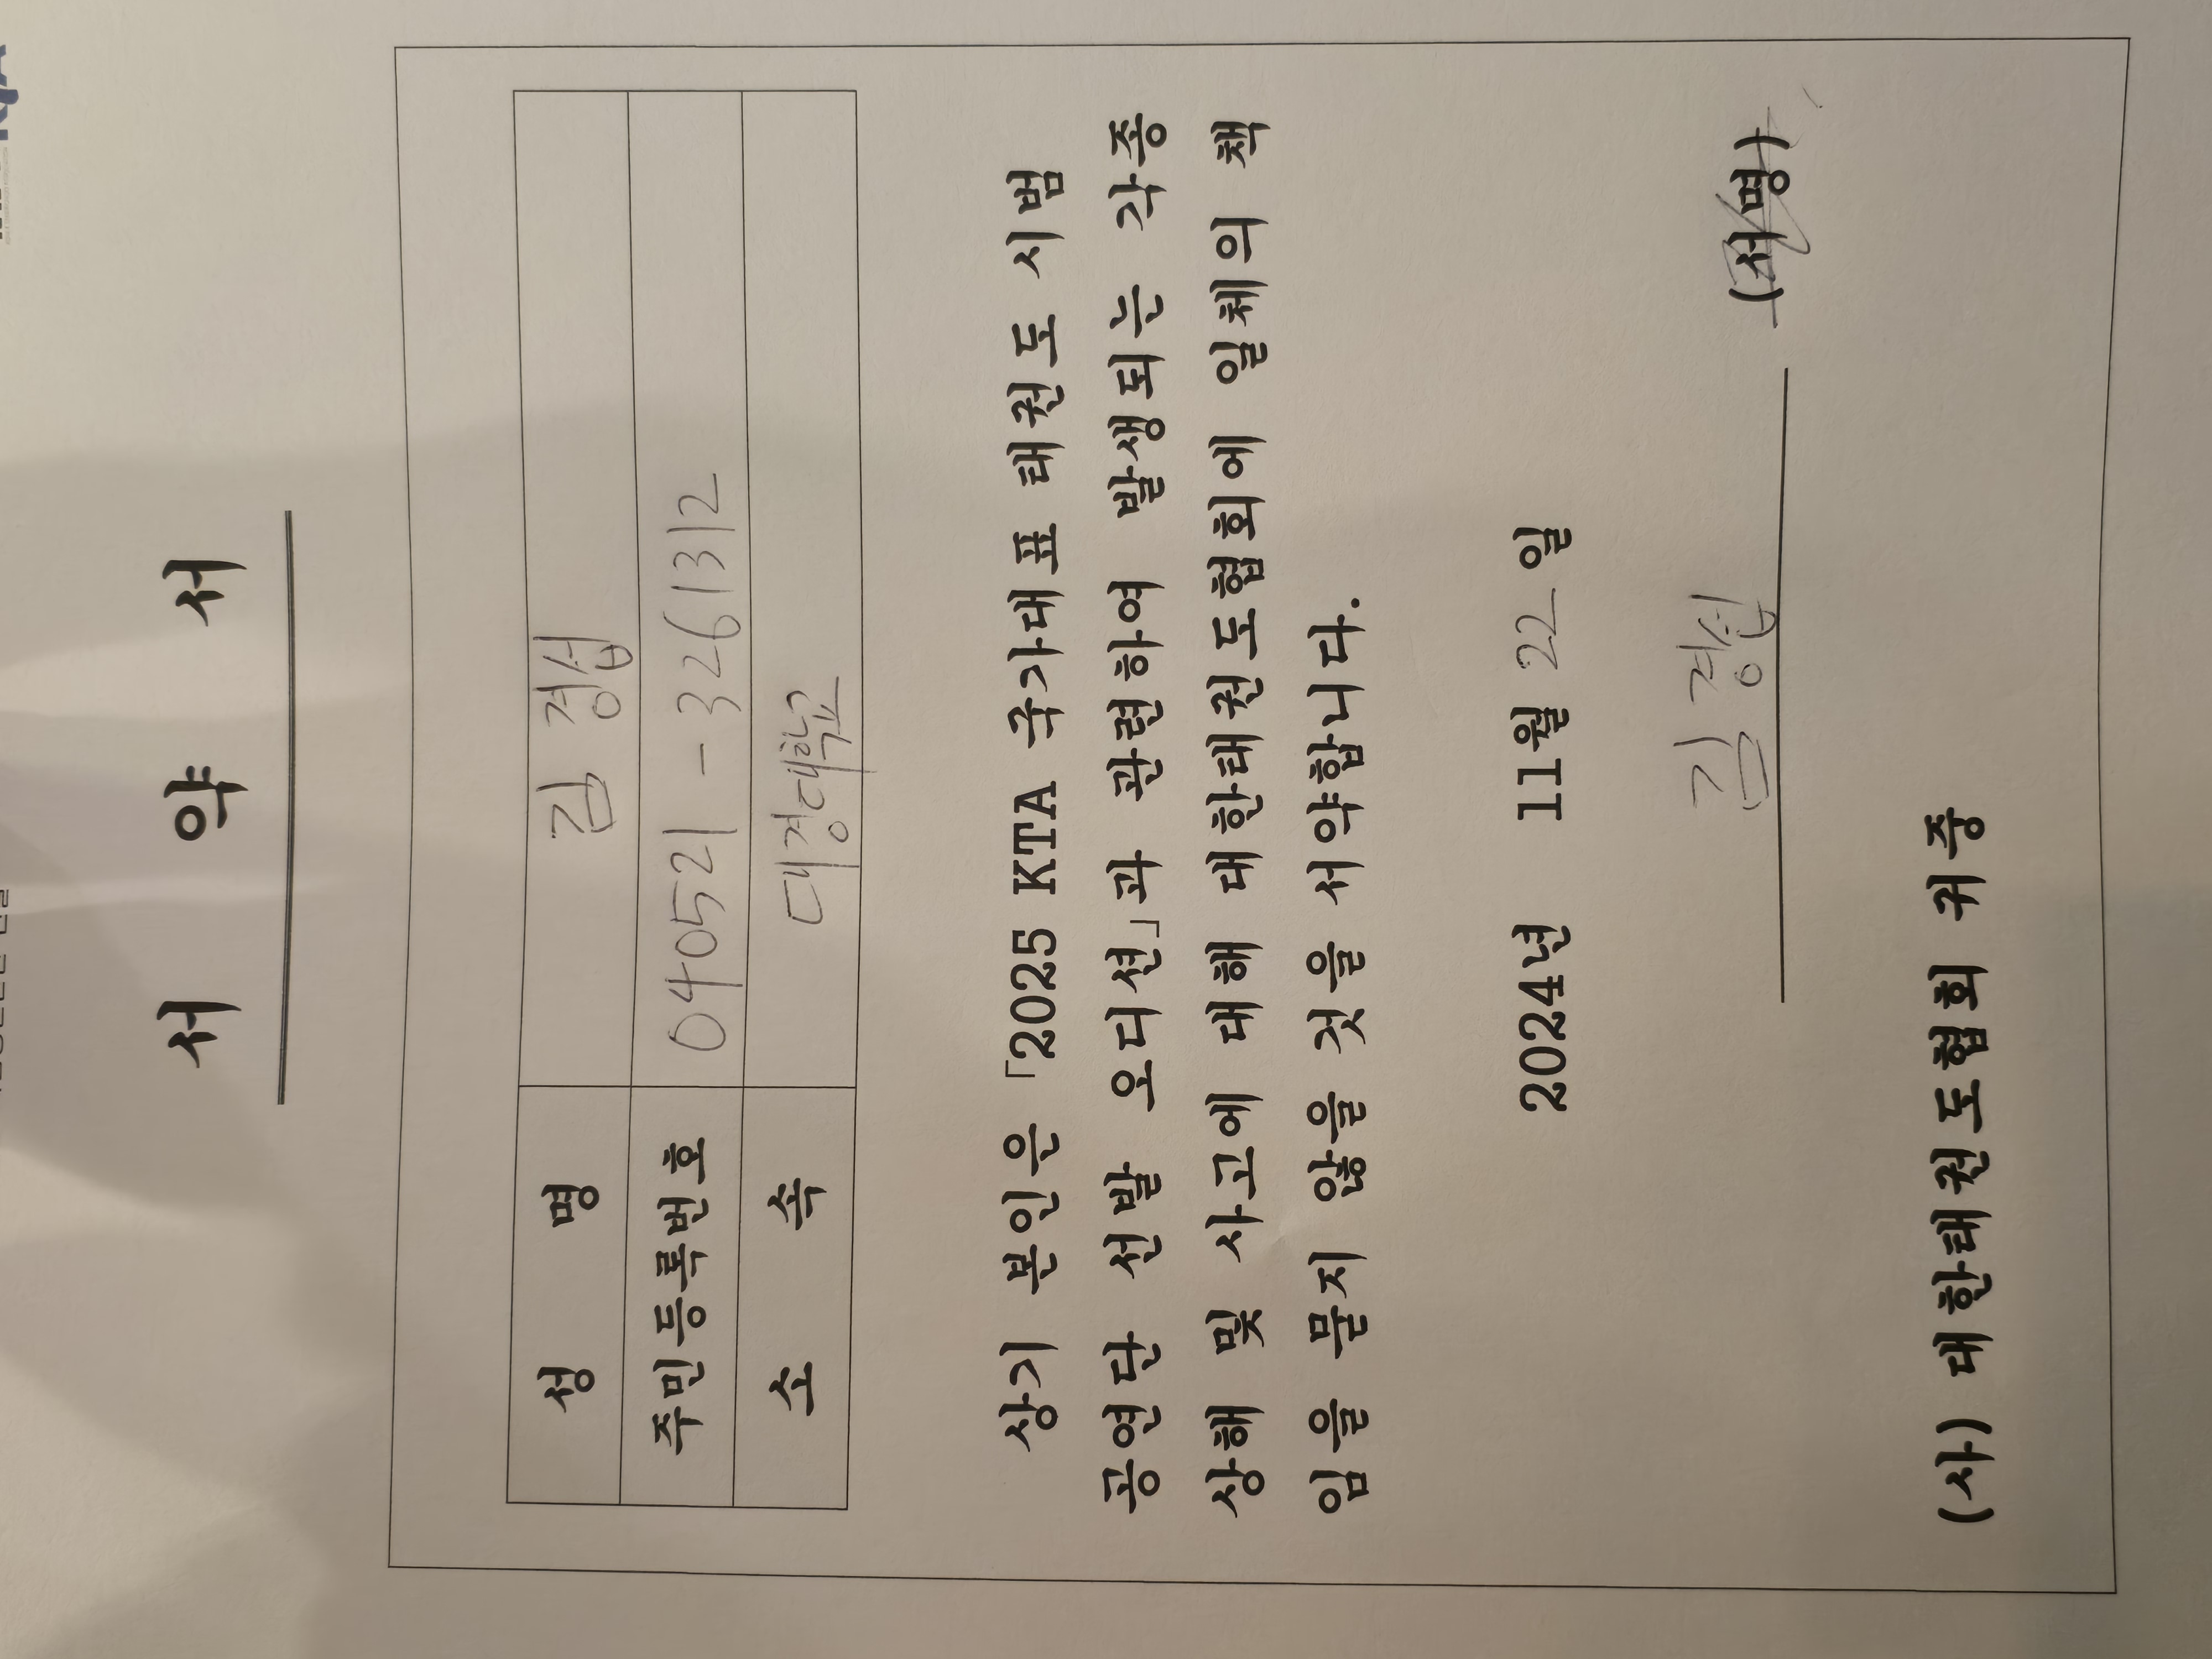 서 약 서
성 명 김경섭
주민등록번호 040521-3261312
소 속 대경대학교
상기 본인은 「2025 KTA 국가대표 태권도 시범
공연단 선발 오디션」과 관련하여 발생되는 각종
상해 및 사고에 대해 대한태권도협회에 일체의 책
임을 묻지 않을 것을 서약합니다.
2024년 11월 22일
김경섭 (서명)
(사) 대한태권도협회 귀중